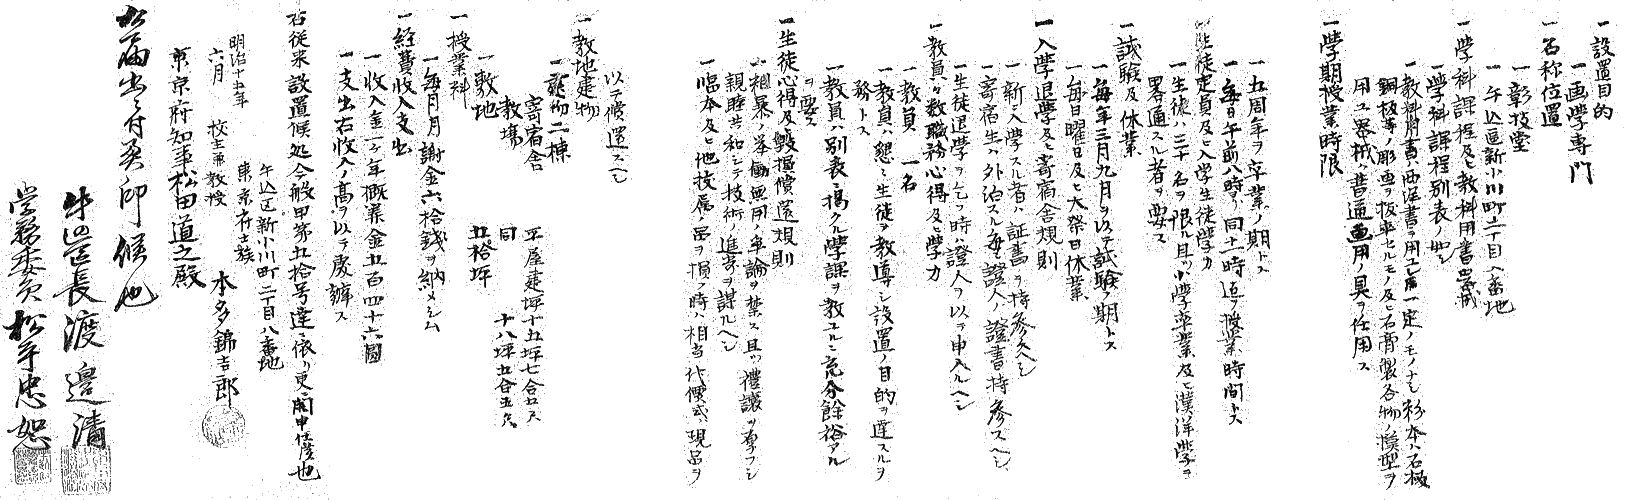 一設置目的
一画学専門
一名称位置
一彰技堂
一牛込區新小川町二丁目八番地
一學科課程及ヒ教科用書器械
一學科課程別表ノ如シ
一教科用書ハ西洋書ヲ用ユ一定ノモノナシ粉本ハ石板
銅板等ノ彫画ヲ板本セルモノ及ヒ石膏製各物ノ模型ヲ
用ユ器械ハ普通画用ノ具ヲ仕用ス
一學期授業時限
一五周年ヲ卒業ノ期トス
一毎日午前八時ヨリ同十一時迄ヲ授業時間トス
一生徒定員及ヒ入学生徒学力
一生徒ハ三十名ヲ限ル且ツ小学卒業及ヒ漢洋學ヲ
畧通スル者ヲ要ス
一試驗及休業
一毎年三月九月ヲ以テ試驗ノ期トス
一毎日曜日及ヒ大祭日休業
一入學退學及ヒ寄宿舎規則
一新ニ入學スル者ハ証書ヲ持参スヘシ
一寄宿生ハ外泊スル毎證人ノ證書持参スヘシ
一生徒退学ヲ乞フ時ハ證人ヲ以テ申入ルヘシ
一教員々数職務心得及ヒ學力
一教員 一名
一教員ハ懇ニ生徒ヲ教導シ設置ノ目的ヲ達スルヲ
務トス
一教員ハ別表ニ掲クル學課ヲ教ユルニ充分餘裕アル
ヲ要ス
一生徒心得及毀損償還規則
一粗暴ノ挙働無用ノ争論ヲ禁ス且ツ禮讓ヲ専フシ
親睦共和シテ技術ノ進歩ヲ謀ルヘシ
一臨本及ヒ他技属ノ品ヲ損ノ時ハ相当代價或ハ現品ヲ
以テ償還スヘシ
一教地建物
一建物二棟
寄宿舎 平屋建坪十五坪七合五夕
教塲 同 十八坪五合五夕
一敷地 五拾坪
一授業料
一毎月月謝金六拾銭ヲ納メシム
一経費収入支出
一収入金一ケ年概算金五百四十六圓
一支出右收入ノ高ヲ以テ慶辨ス
右従来設置候処今般甲第五拾号達ニ依リ更ニ開申仕候也
牛込区新小川町二丁目八番地
東京府士族
明治十七年
六月 校主兼教授 本多錦吉郎
東京府知事松田道之殿
前届出ニ付奥印候也
牛込区長渡邉清
学務委員松平忠恕